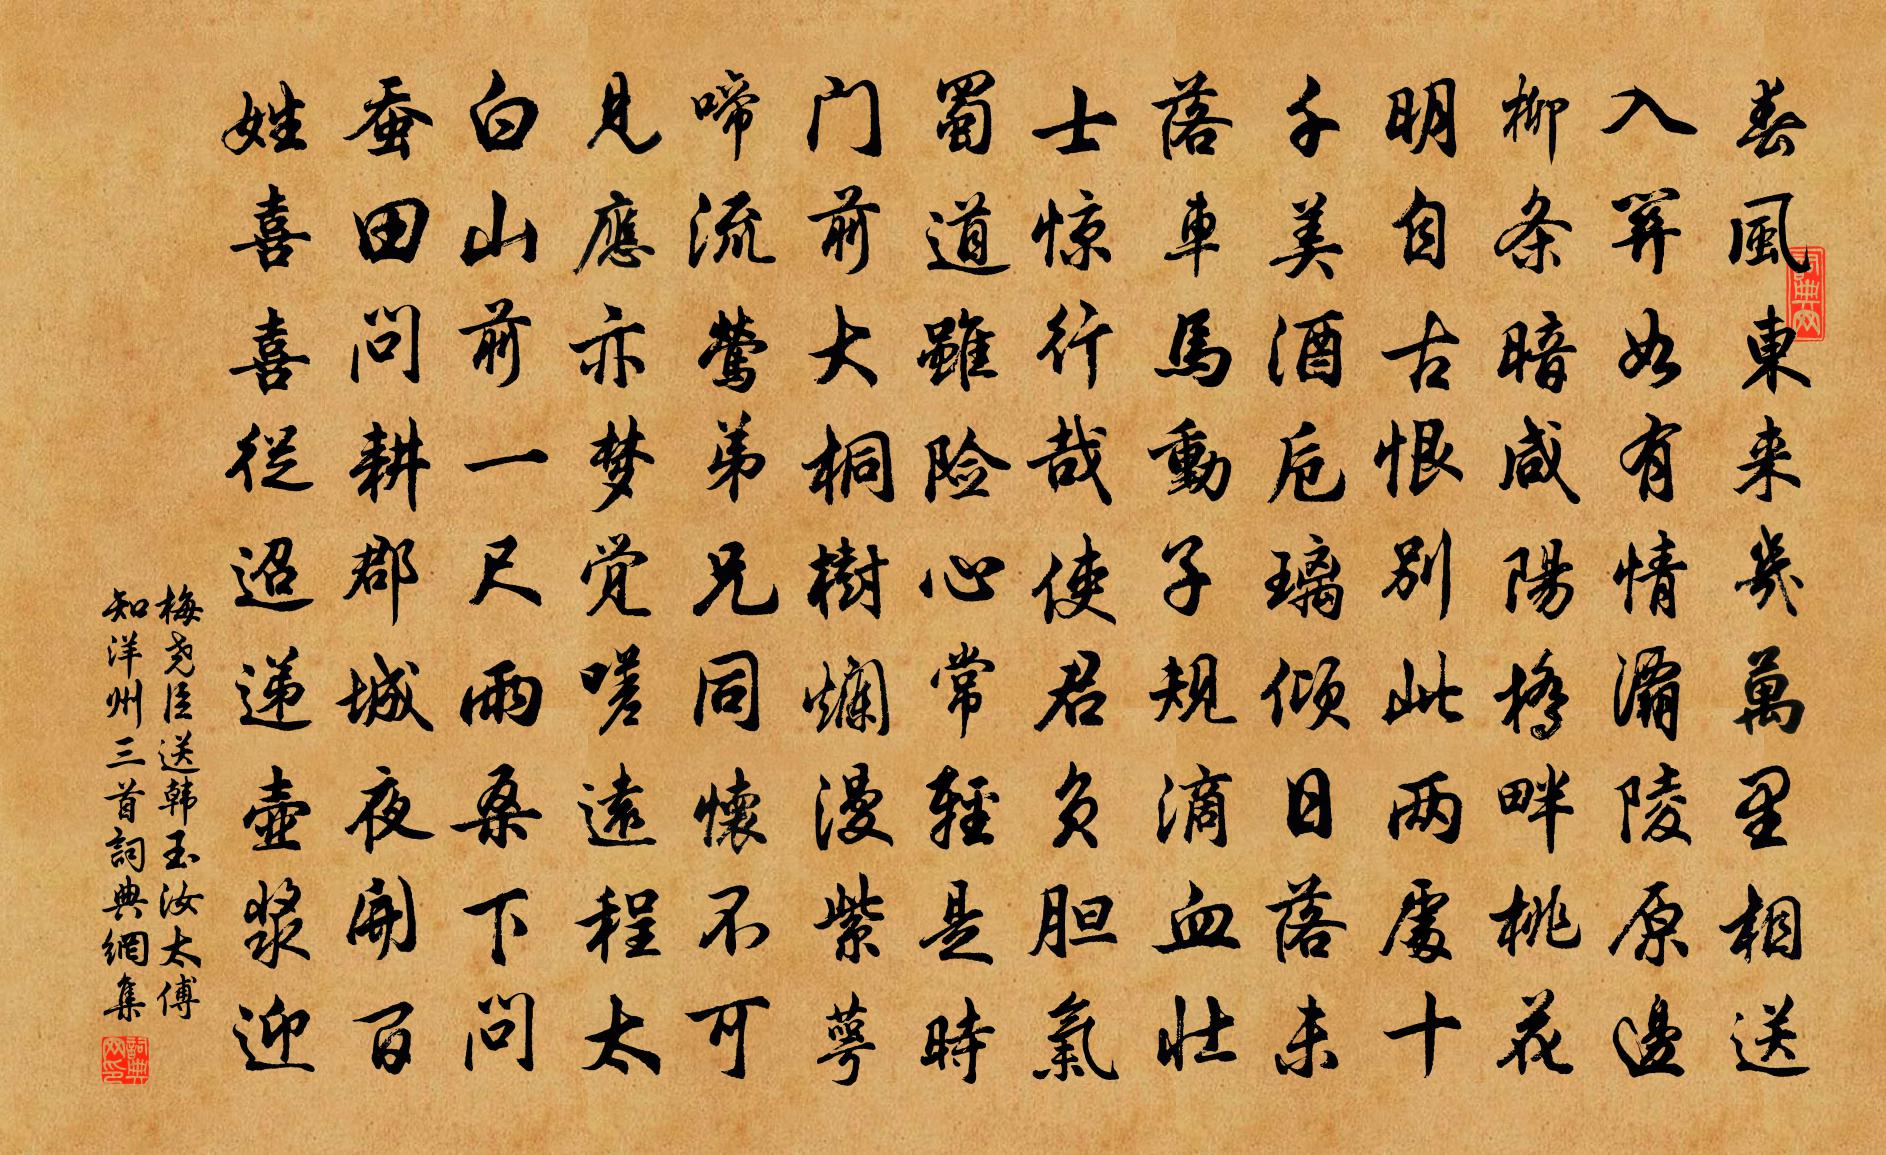 春風東来幾萬里相送
入關如有情灞陵原邊
柳条暗咸陽橋畔桃花
明自古恨别此两處十
千美酒卮璃倾日落未
落車馬動子規滴血壮
士惊行哉使君负胆氣
蜀道雖险心常輕是時
门前大桐樹爛漫紫萼
啼流鶯弟兄同懷不可
見應亦梦觉嗟遠程太
白山前一尺雨桑下问
蚕田问耕郡城夜開百
姓喜喜従迢递壶漿迎
梅尧臣送韩玉汝太傅
知洋州三首詞典網集
詞典网
詞典网印